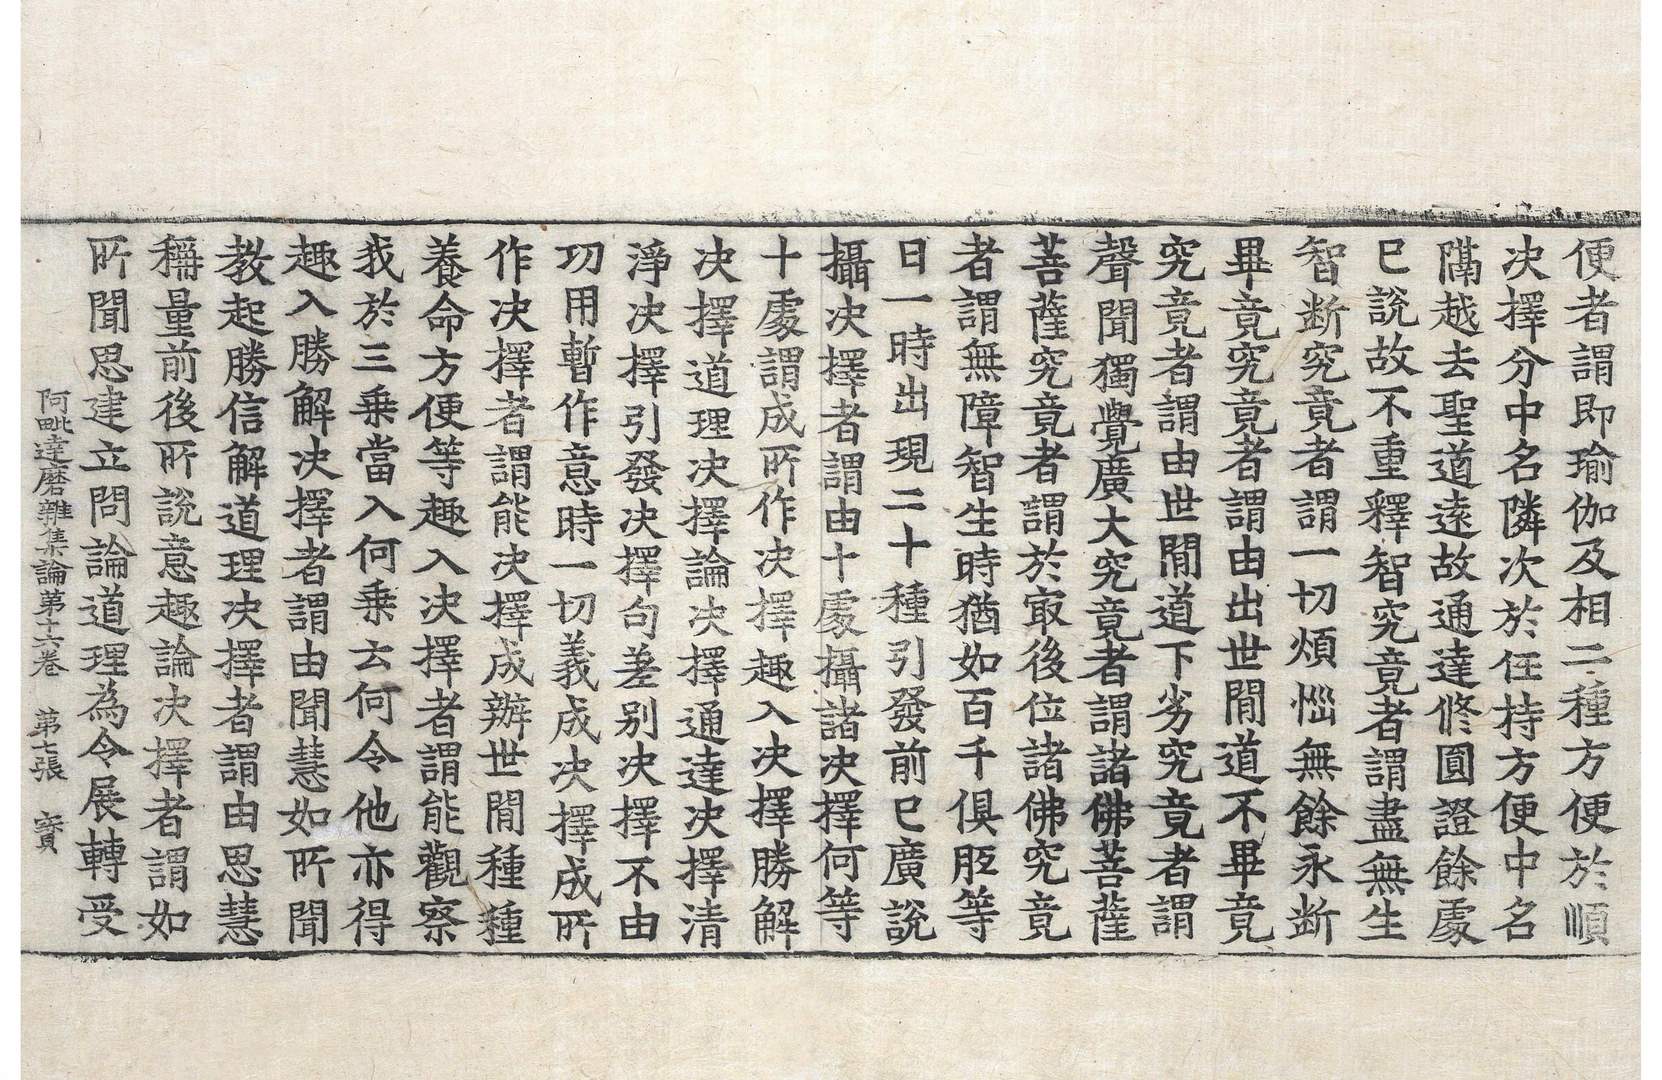 便者謂即瑜伽及相二種方便於順
决擇分中名隣次於任持方便中名
隔越去聖道逺故通達修圓證餘處
已說故不重釋智究竟者謂盡無生
智断究竟者謂一切煩惱無餘永断
畢竟究竟者謂由出世間道不畢竟
究竟者謂由世間道下劣究竟者謂
聲聞獨覺廣大究竟者謂諸佛菩薩
菩薩究竟者謂於㝡後位諸佛究竟
者謂無障智生時猶如百千俱胝等
日一時出現二十種引發前已廣說
攝决擇者謂由十處攝諸决擇何等
十處謂成所作决擇趣入决擇勝解
决擇道理决擇論决擇通達决擇清
淨决擇引發决擇句差别决擇不由
功用暫作意時一切義成决擇成所
作决擇者謂能决擇成辦世間種種
養命方便等趣入决擇者謂能觀察
我於三乗當入何乗云何令他亦得
趣入勝解决擇者謂由聞慧如所聞
教起勝信解道理决擇者謂由思慧
稱量前後所說意趣論决擇者謂如
所聞思建立問論道理為令展轉受
阿毗達磨雜集論第十六卷　第七張　寳